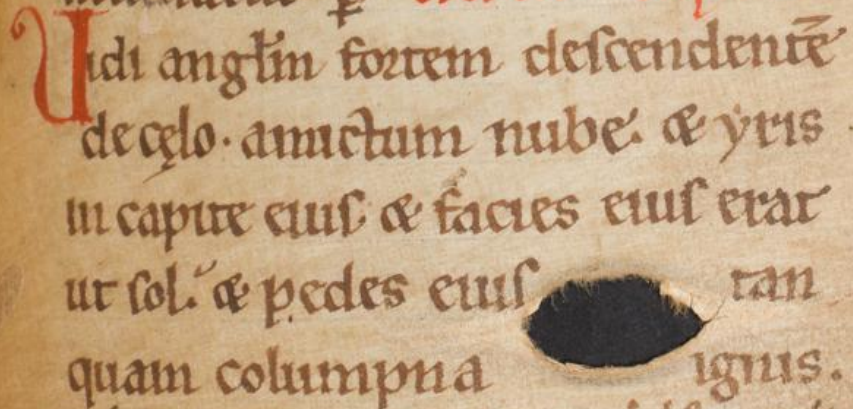 Uidi angłm fortem descendentē
de cęlo· amictum nube· & yris
in capite eius· & facies eius erat
ut sol· & pedes eius tan
quam columpna ignis.